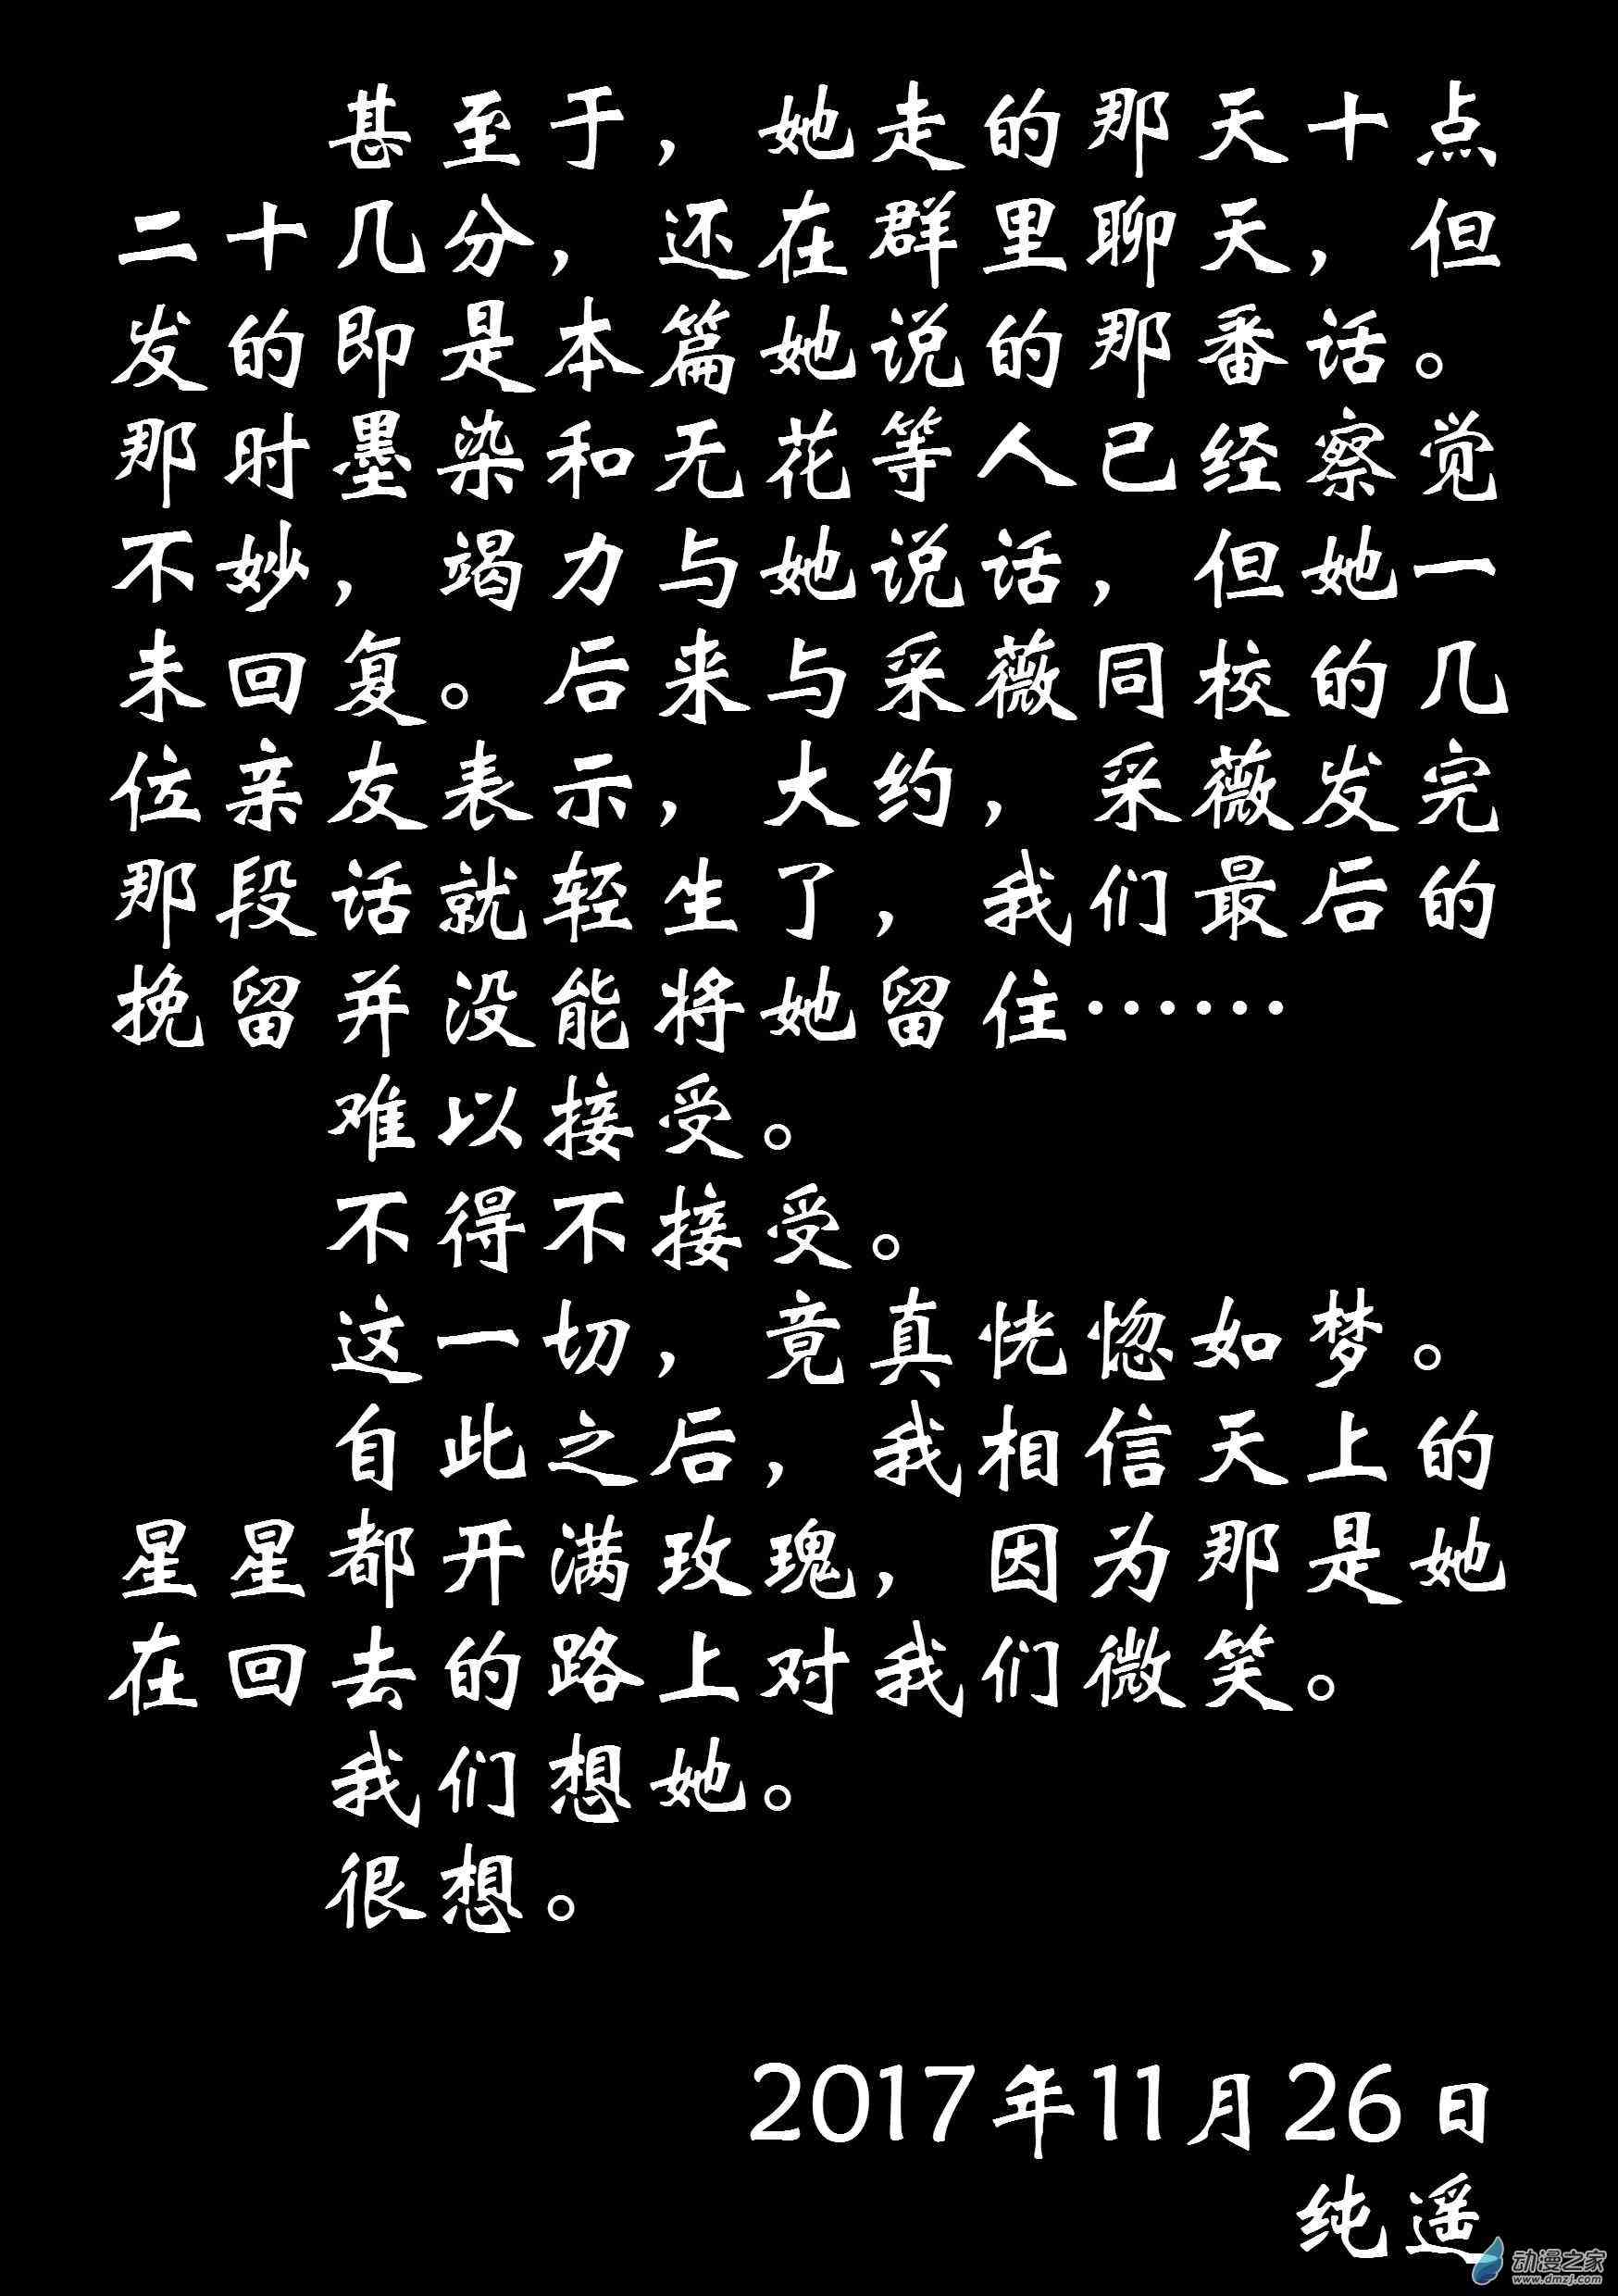 甚至于，她走的那天十点
二十几分，还在群里聊天，但
发的即是本篇她说的那番话。
那时墨染和无花等人已经察觉
不妙，竭力与她说话，但她一
未回复。后来与采薇同校的几
位亲友表示，大约，采薇发完
那段话就轻生了，我们最后的
挽留并没能将她留住……
难以接受。
不得不接受。
这一切，竟真恍惚如梦。
自此之后，我相信天上的
星星都开满玫瑰，因为那是她
在回去的路上对我们微笑。
我们想她。
很想。
2017年11月26日
纯遥
动漫之家
www.dmzj.com